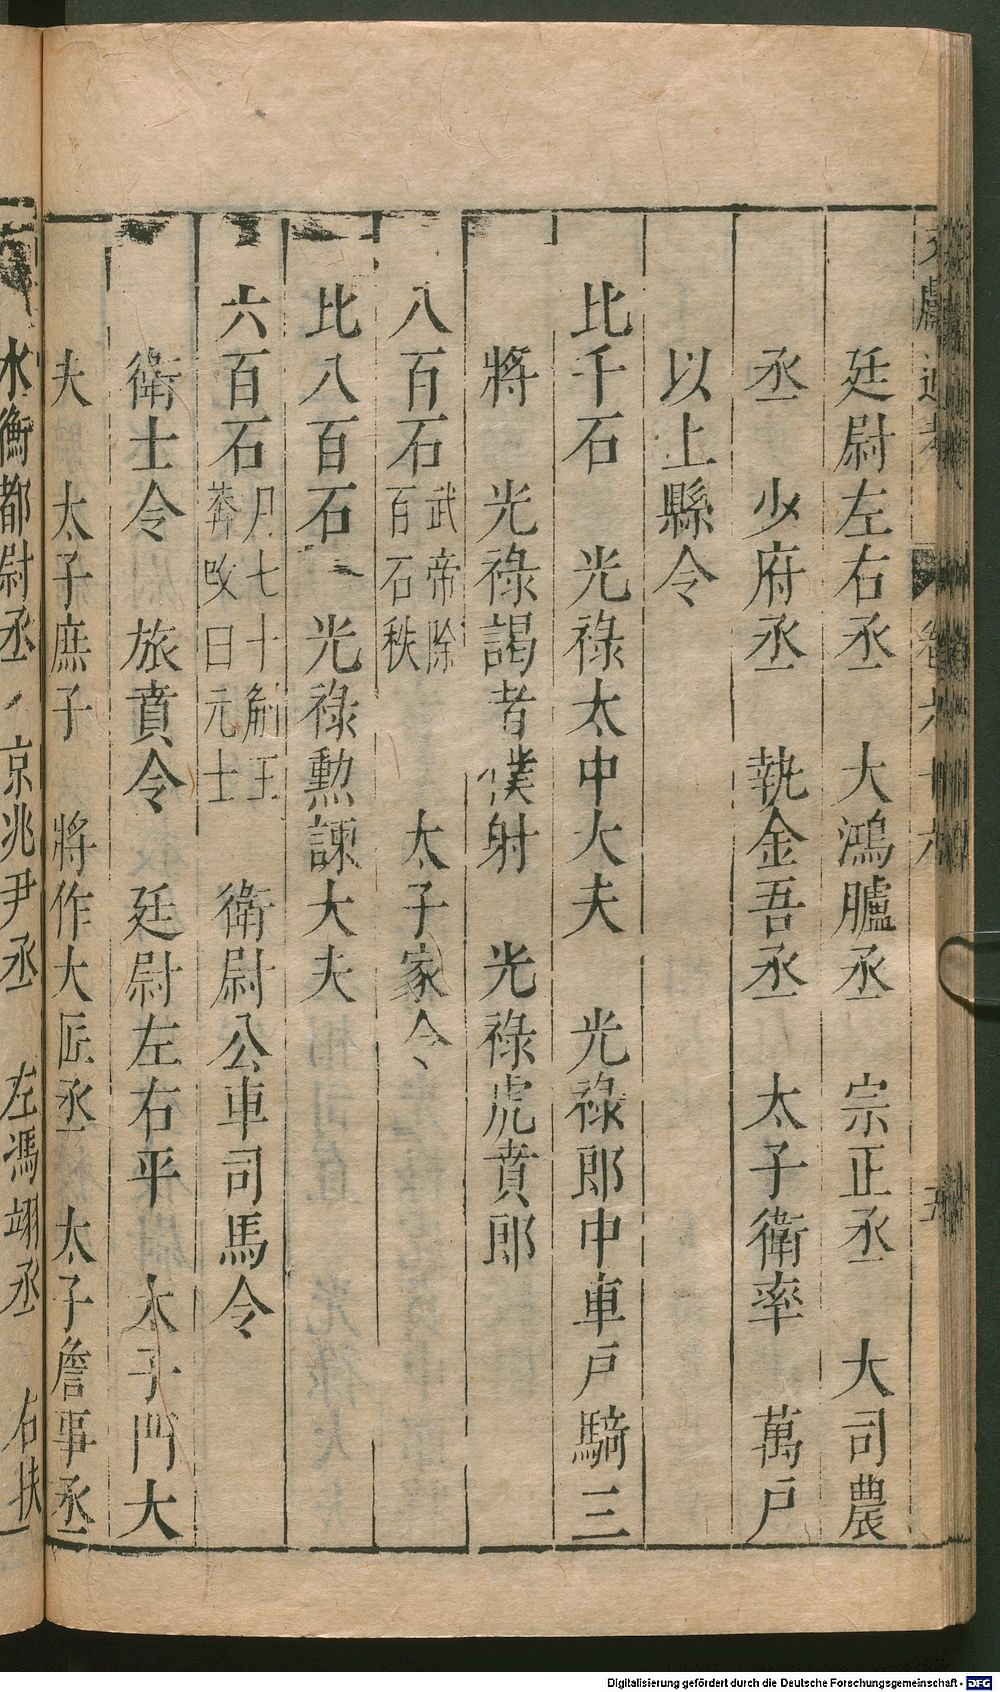 文獻通考 卷六十六 五
廷尉左右丞 大鴻臚丞 宗正丞 大司農
丞 少府丞 執金吾丞 太子衛率 萬戸
以上縣令
比千石 光祿太中大夫 光祿郎中車戸騎三
將 光祿謁者僕射 光祿虎賁郎
八百石 武帝除
百石秩 太子家令
比八百石 光祿勲諫大夫
六百石 月七十斛王
莽改曰元士 衛尉公車司馬令
衛士令 旅賁令 廷尉左右平 太子門大
夫 太子庶子 將作大匠丞 太子詹事丞
水衡都尉丞 京兆尹丞 左馮翊丞 右扶
Digitalisierung gefördert durch die Deutsche Forschungsgemeinschaft - DFG